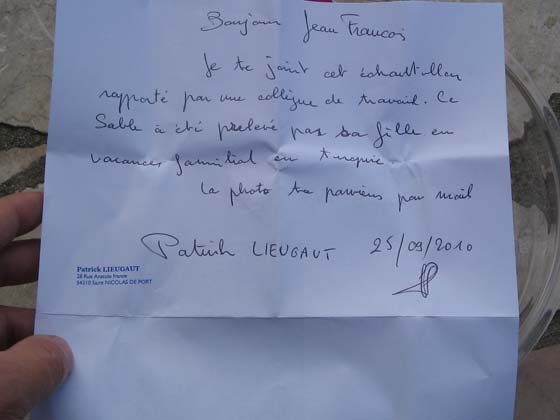 Bonjour Jean Francois
Je te joint cet échantillon
rapporté par une collègue de travail. Ce
Sable à été prelevé par sa fille en
vacances familial en turquie.
La photo te parviens par mail
Patrick LIEUGAUT 25/09/2010
Patrick LIEUGAUT
28 Rue Anatole france
54210 Saint NICOLAS DE PORT